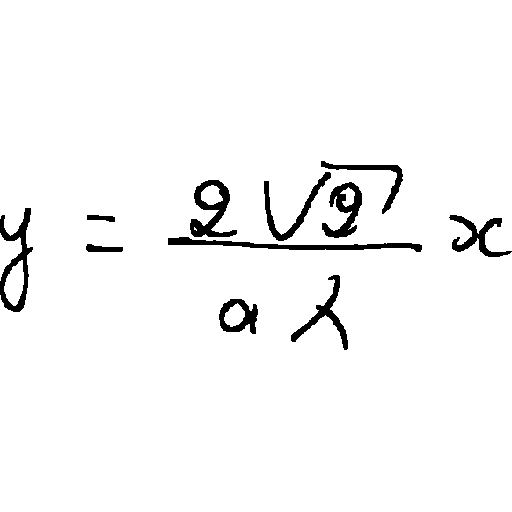 y = \frac{2\sqrt{2}}{a\lambda} x